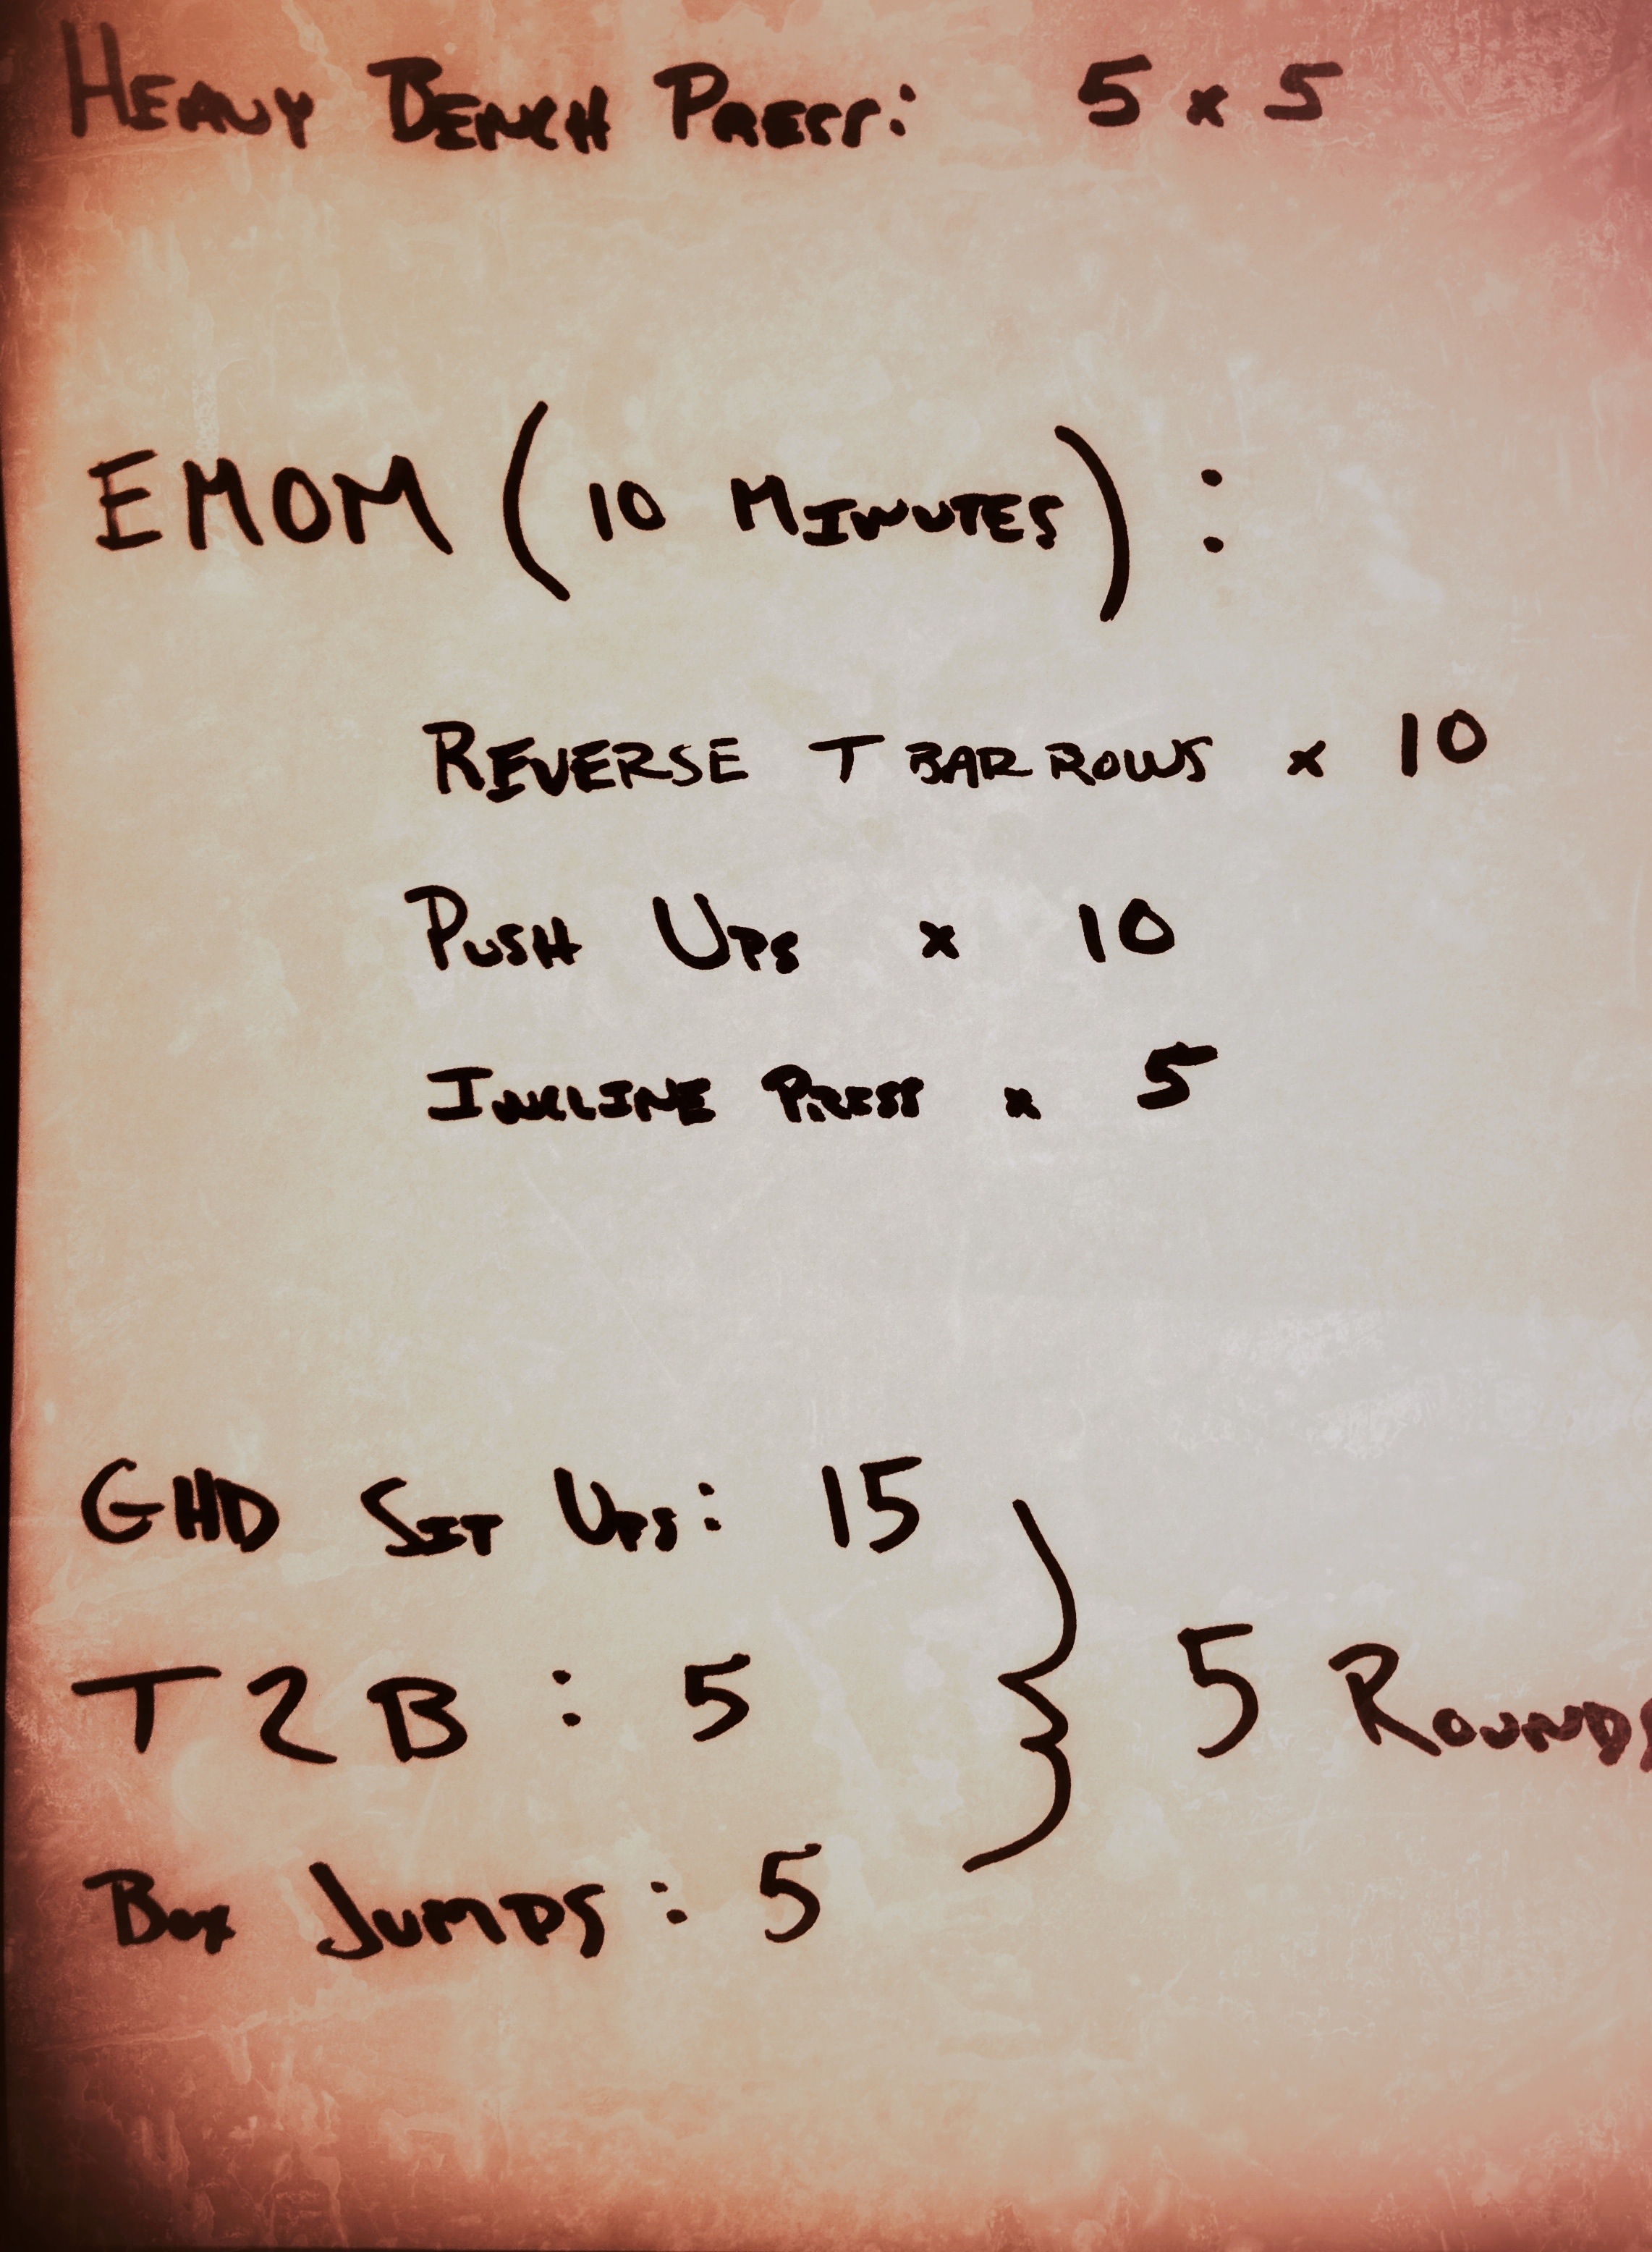 HEAVY BENCH PRESS: 5 x 5
EMOM (10 MINUTES):
REVERSE T BAR ROWS x 10
PUSH UPS x 10
INCLINE PRESS x 5
GHD SIT UPS: 15
T2B: 5
5 ROUNDS
BOX JUMPS: 5